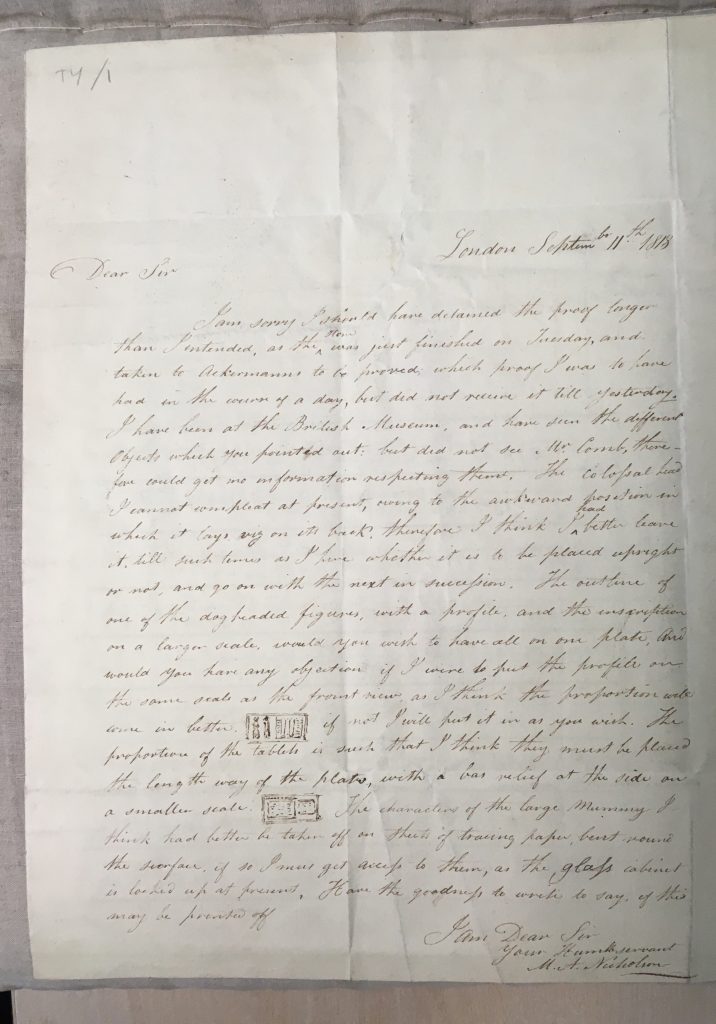 T4/1
London Septembr 11th 1818
Dear Sir
I am sorry I should have detained the proof longer
than I intended, as the stone was just finished on Tuesday, and
taken to Ackermanns to be proved; which proof I was to have
had in the course of a day, but did not receive it till yesterday.
I have been at the British Museum, and have seen the different
objects which you pointed out; but did not see Mr. Comb, there-
fore could get no information respecting them. The colossal head
I cannot compleat at present, owing to the awkward position in
which it lays viz on its back; therefore I think I had better leave
it, till such times as I hear whether it is to be placed upright
or not, and go on with the next in succession. The outline of
one of the dogheaded figures, with a profile, and the inscription
on a larger scale, would you wish to have all on one plate, And
would you have any objection if I were to put the profile on
the same scale as the front view, as I think the proportion will
come in better. if not I will put it in as you wish. The
proportion of the tablets is such that I think they must be placed
the length way of the plate, with a bas relief at the side on
a smaller scale. The characters of the large Mummy I
think had better be taken off on sheets of tracing paper, bent round
the surface, if so I must get access to them, as the glass cabinet
is locked up at present. Have the goodness to write to say, if this
may be printed off
I am Dear Sir
Your Humble servant
M. A. Nicholson